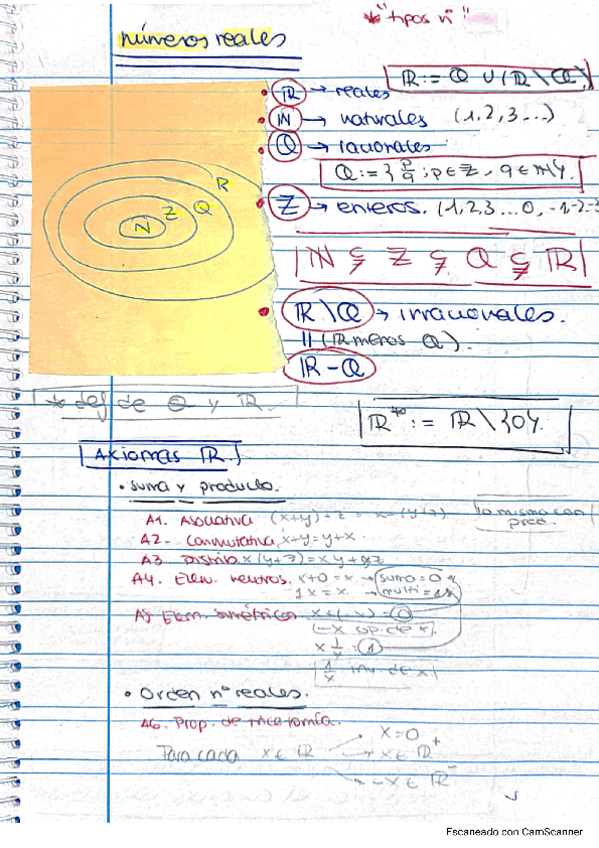 * "tipos nº"
números reales
ℝ := ℚ ∪ (ℝ \ ℚ)
ℝ → reales
ℕ → naturales (1,2,3...)
ℚ → racionales
ℚ := { p/q ; p ∈ ℤ, q ∈ ℕ }.
ℤ → enteros. (1,2,3...0,-1-2-3
R
Z Q
N
ℕ ⊊ ℤ ⊊ ℚ ⊊ ℝ
ℝ \ ℚ → irracionales.
|| (ℝ menos ℚ).
ℝ - ℚ
* def de ℚ y ℝ.
:= ℝ \ {0}.
Axiomas ℝ.
• suma y producto.
A1. Asociativa (x+y)+z = x+(y+z) lo mismo con prod.
A2. Conmutativa x+y=y+x.
A3. Distrib x(y+z)=xy+xz
A4. Elem. neutros. x+0=x → suma=0
1x=x. → multi=1
A5 Elem. simétricos x+(-x)=0
-x op. de x.
x 1/x = 1
1/x inv. de x
• Orden nº reales.
A6. Prop. de tricotomía.
x=0
Para cada x ∈ ℝ → x ∈ ℝ⁺
→ -x ∈ ℝ
Escaneado con CamScanner